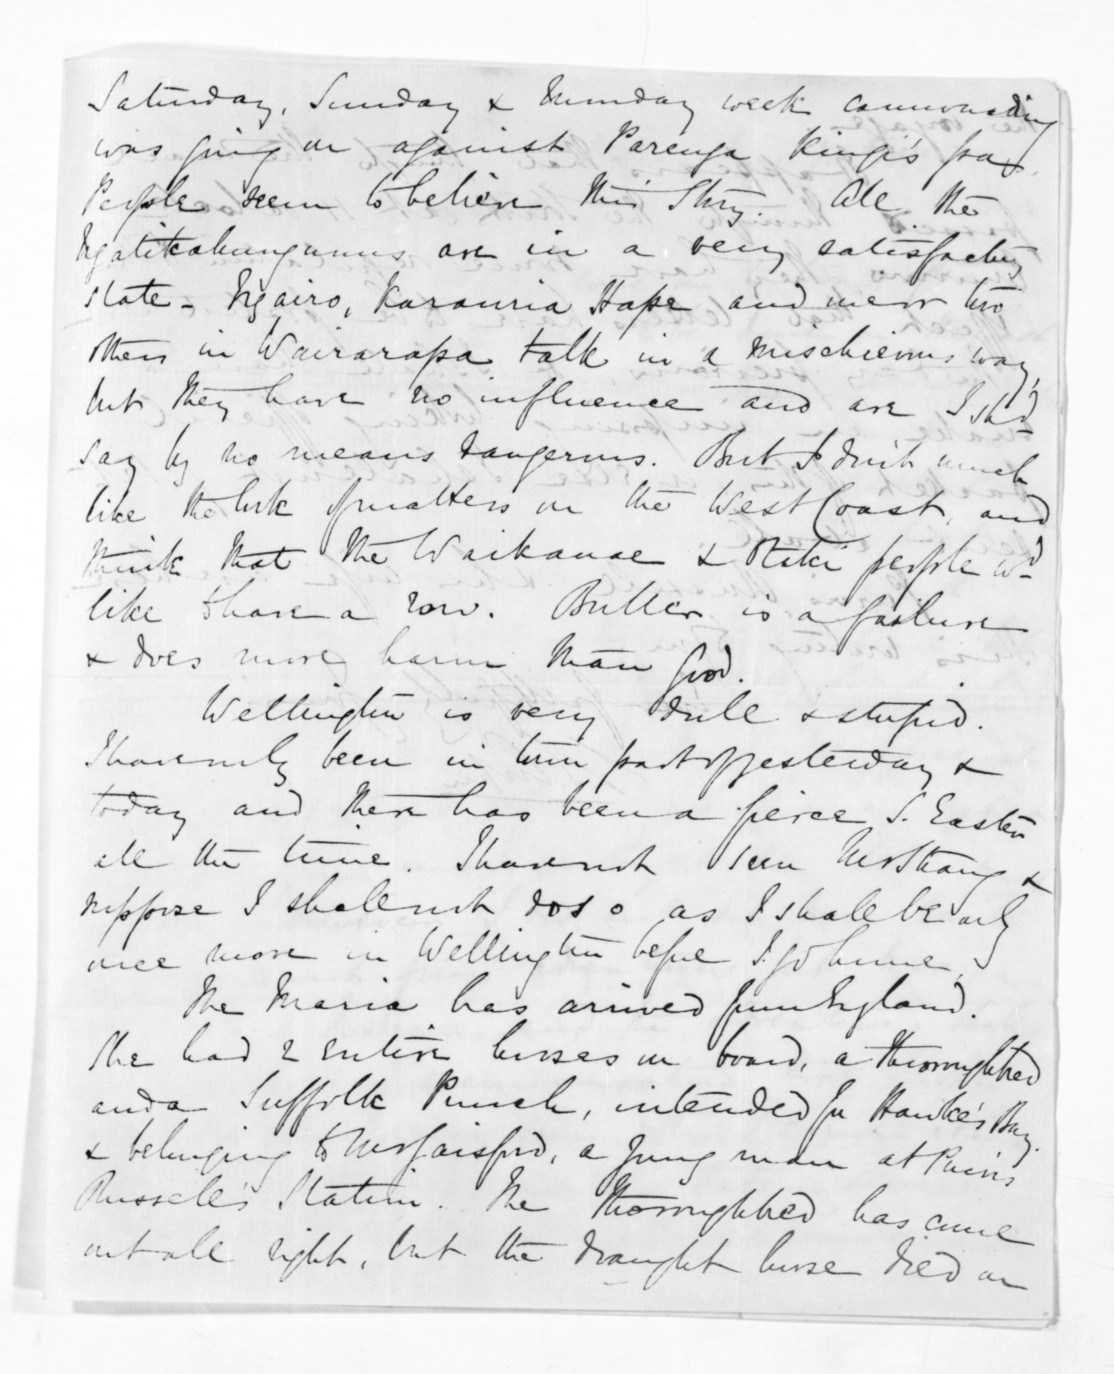 Saturday, Sunday & Munday week cannonading
was going on against Parenga Kingi's pa.
People seem to believe this story. All the
Ngatikahungunus are in a very satisfactory
state - Ngairo, Karauria Hape and one or two
others in Wairarapa talk in a mischievous way,
but they have no influence and are I shd
say by no means dangerous. But I don't much
like the look of matters on the West Coast, and
think that the Waikanae & Otaki people wd
like to have a row. Buller is a failure
& does more harm than good.
Wellington is very dull & stupid.
I have only been in town part of yesterday &
today and there has been a fierce S. Easter
all the time. I have not seen Mr Strang &
suppose I shall not do so as I shall be only
once more in Wellington before I go home.
The Maria has arrived from England.
She had 2 entire horses on board, a thoroughbred
and a Suffolk Punch, intended for Hawke's Bay.
& belonging to Mr Gaisford, a young man at Purvis
Russell's Station. The thoroughbred has come
out all right, but the draught horse died on